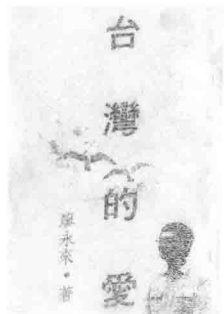 台灣的愛
廖永來•著